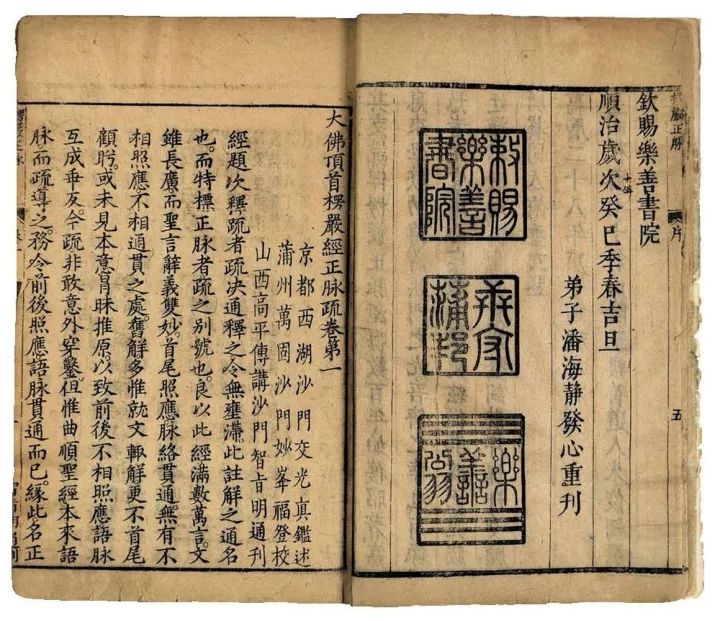 楞嚴正脉 序 五
欽賜樂善書院
順治歲次癸巳季春吉旦
弟子潘海靜發心重刊
敕賜樂善書院
樂善
大佛頂首楞嚴經正脉疏卷第一
京都西湖沙門交光真鑑述
蒲州萬固沙門妙峯福登校
山西高平傳講沙門智旨明通刊
經題次釋疏者疏決通釋之令無壅滯。此註解之通名
也。而特標正脉者疏之别號也。良以此經滿數萬言。文
雖長廣而聖言辭義雙妙。首尾照應脉絡貫通。無有不
相照應不相通貫之處。舊解多惟就文輙解更不首尾
顧盻。或未見本意肎昧推原。以致前後不相照應語脉
互成垂友。今疏非敢意外穿鑿。但惟曲順聖經本來語
脉而疏導之。務令前後照應語脉貫通而已。緣此名正